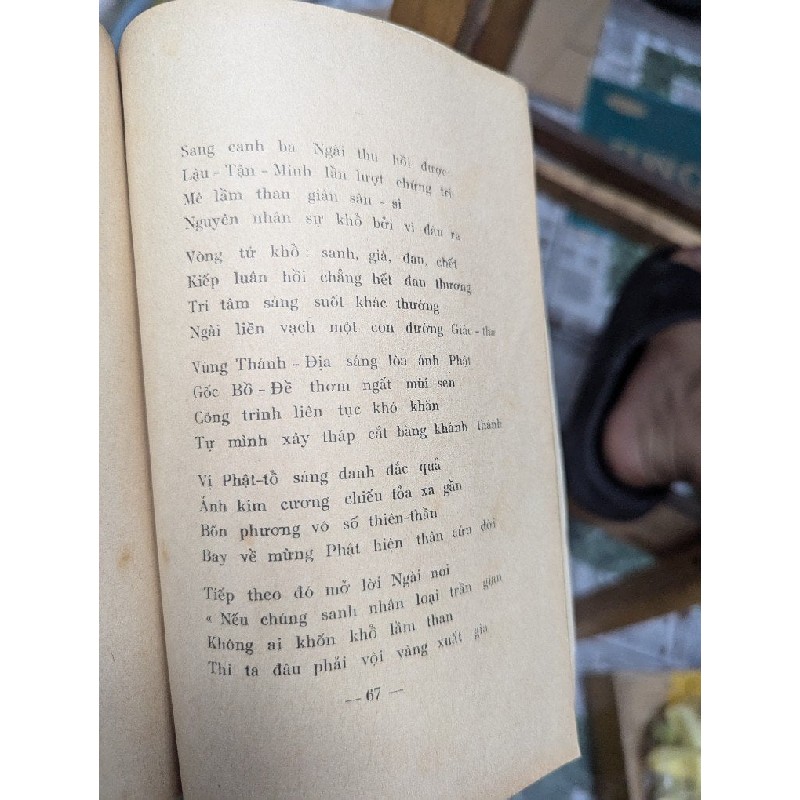 Sang canh ba Ngài thu hồi được
Lậu - Tận - Minh lần lượt chứng tri
Mê lầm than giận sân - si
Nguyên nhân sự khổ bởi vì đâu ra
Vòng tứ khổ sanh, già, đau, chết
Kiếp luân hồi chẳng hết đau thương
Trí tâm sáng suốt khác thường
Ngài liền vạch một con đường Giác - tha
Vùng Thánh - Địa sáng lòa ánh Phật
Gốc Bồ - Đề thơm ngất mùi sen
Công trình liên tục khó khăn
Tự mình xây tháp cất bàng khánh thành
Vị Phật-tổ sáng danh đắc quả
Ánh kim cương chiếu tỏa xa gần
Bốn phương vô số thiên-thần
Bay về mừng Phật hiện thân cứu đời
Tiếp theo đó mở lời Ngài nói
« Nếu chúng sanh nhân loại trần gian
Không ai khốn khổ lầm than
Thì ta đâu phải vội vàng xuất gia
— 67 —